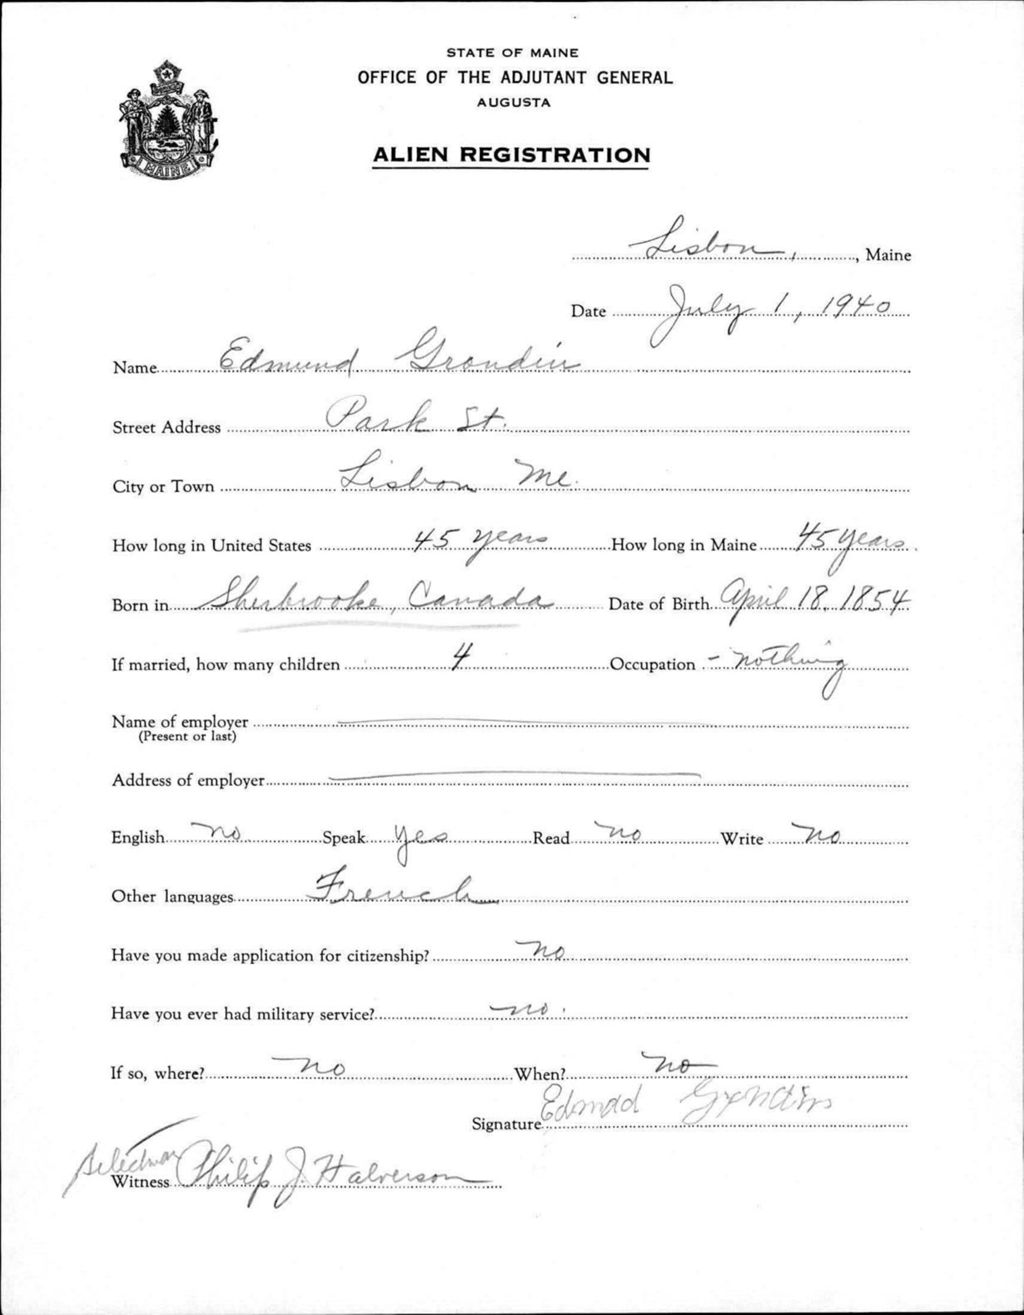 STATE OF MAINE
OFFICE OF THE ADJUTANT GENERAL
AUGUSTA
ALIEN REGISTRATION
MAINE
Lisbon, , Maine
Date July 1, 1940
Name Edmund Grondin
Street Address Park St.
City or Town Lisbon Me.
How long in United States 45 years How long in Maine 45 years
Born in Sherbrooke, Canada Date of Birth April 18, 1854
If married, how many children 4 Occupation - nothing
Name of employer
(Present or last)
Address of employer
English No Speak Yes Read No Write No
Other languages French
Have you made application for citizenship? No
Have you ever had military service? No.
If so, where? No When? No
Signature Edmod
Selectman
Witness Philip J. Halverson